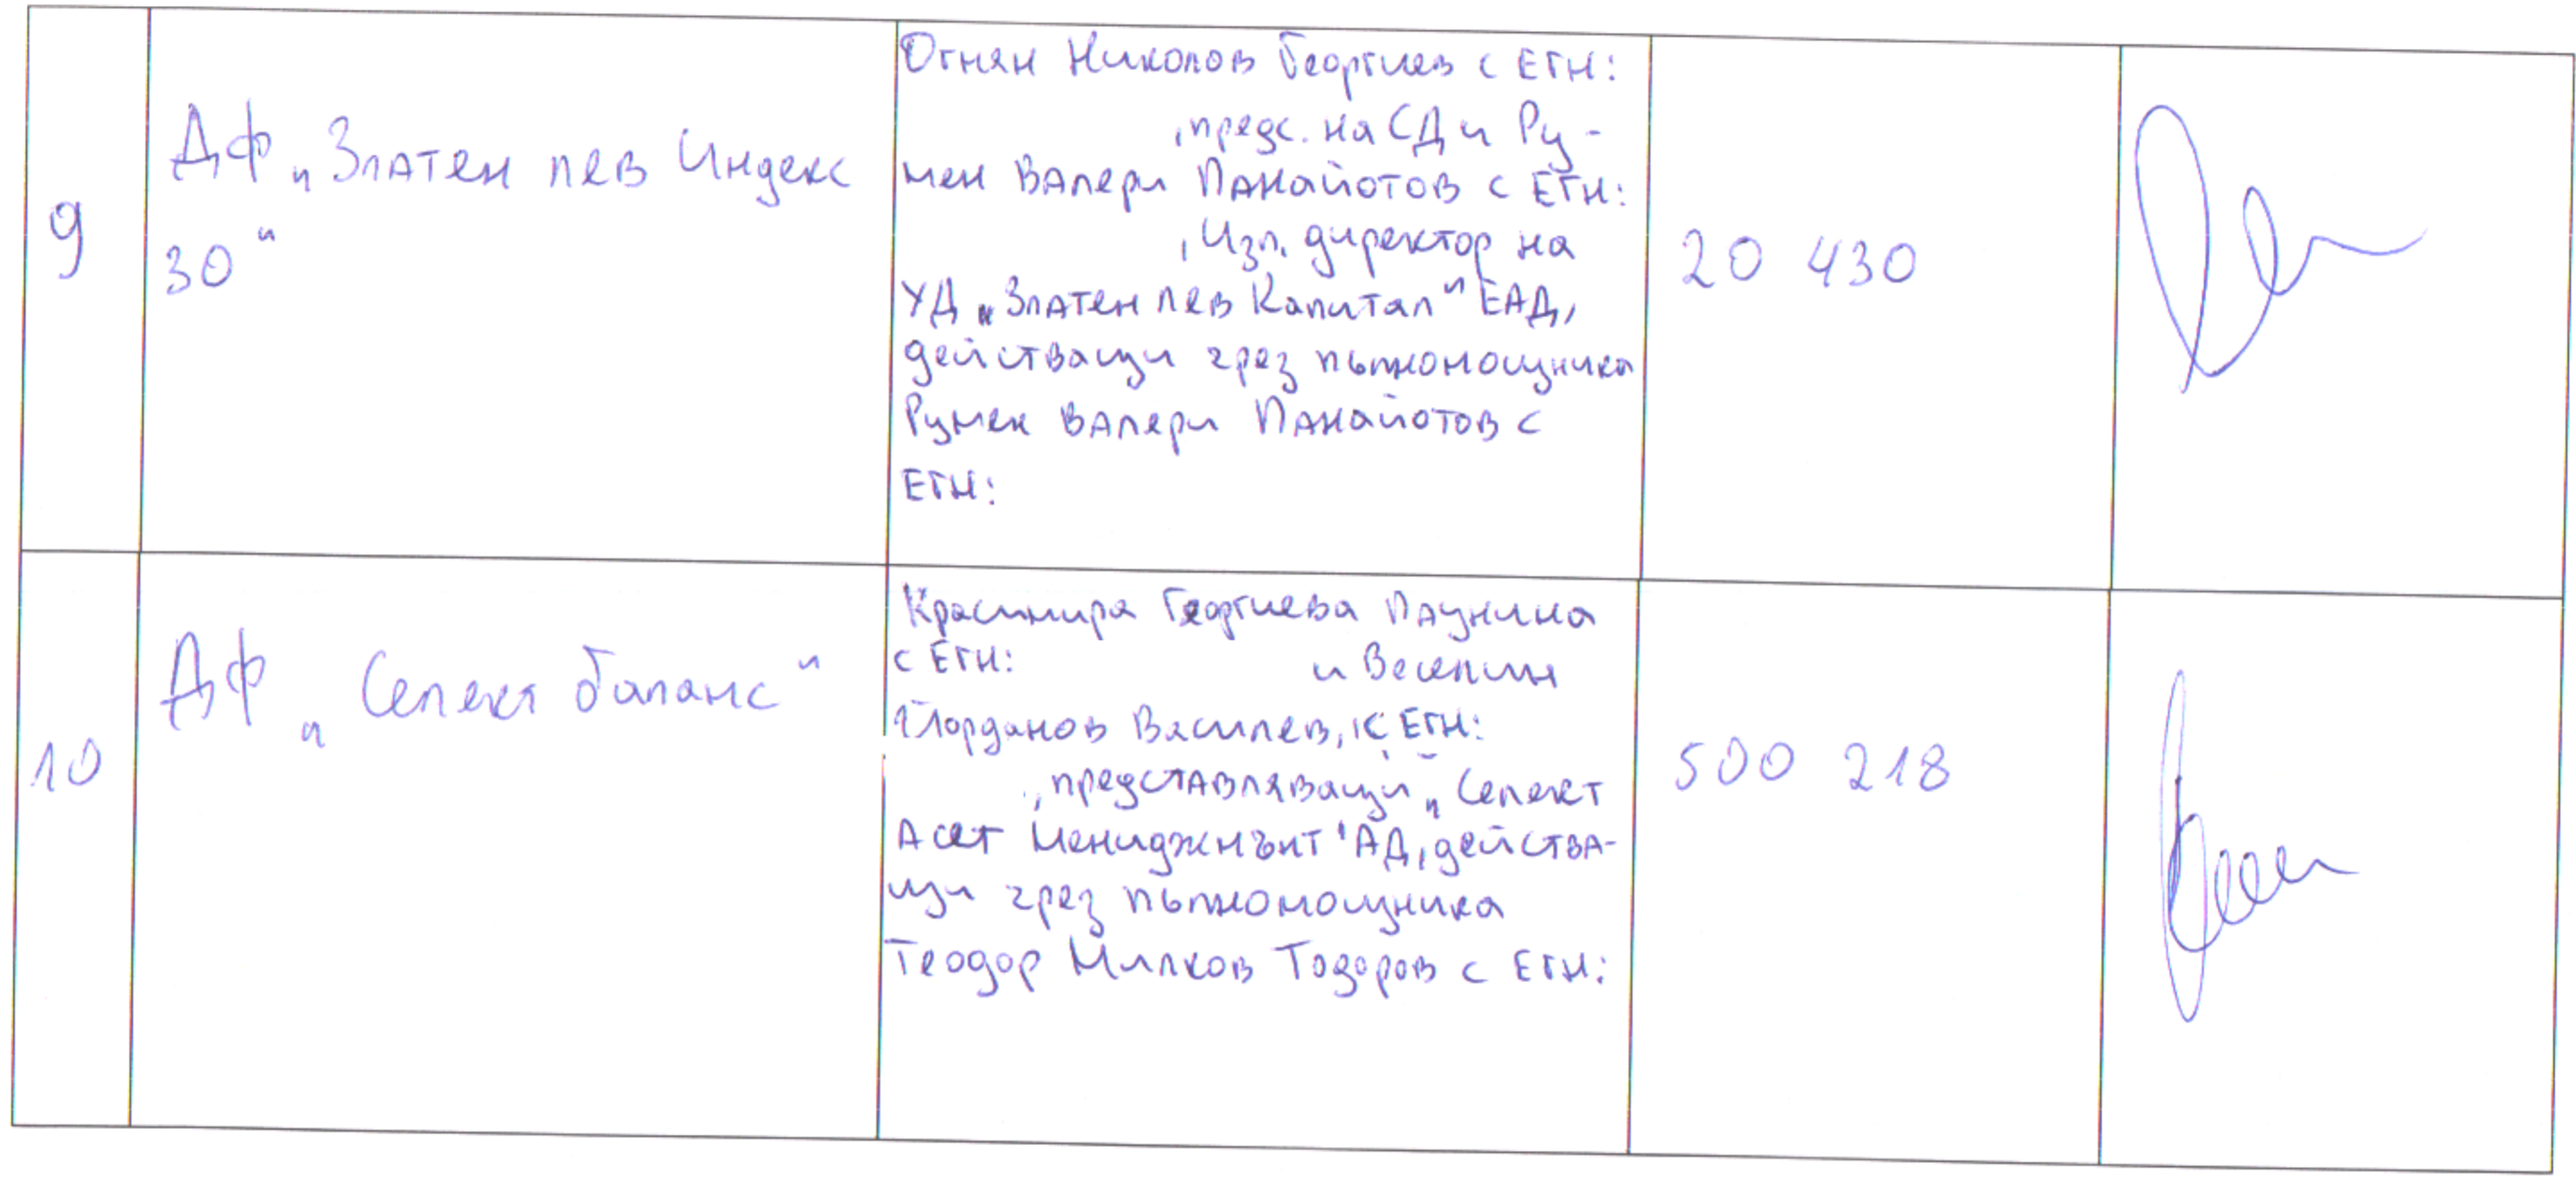 9
ДФ „Златен лев Индекс
30"
Огнян Николов Георгиев с ЕГН:
, предс. на СД и Ру-
мен Валери Панайотов с ЕГН:
, Изп. директор на
УД „Златен лев Капитал" ЕАД,
действащи чрез пълномощника
Румен Валери Панайотов с
ЕГН:
20 430
10
ДФ „Селект баланс"
Красимира Георгиева Паунина
с ЕГН: и Веселин
Йорданов Василев, с ЕГН:
, представляващи „Селект
Асет Мениджмънт" АД, действа-
щи чрез пълномощника
Теодор Милков Тодоров с ЕГН:
500 218